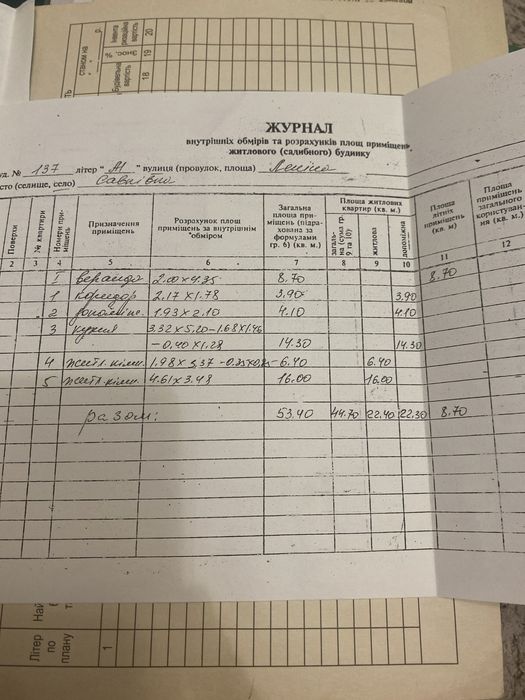 станом на
р.
Інвента
ризаційна
вартість
% знос.
Будівельна
вартість
20
19
18
ЖУРНАЛ
внутрішніх обмірів та розрахунків площ приміщень
житлового (садибного) будинку
уд. № 137 літер "А1" вулиця (провулок, площа) Леніна
сто (селище, село) Савинва
Поверхи
№ квартири
Номери при-
міщень
Призначення
приміщень
Розрахунок площ
приміщень за внутрішнім
обміром
Загальна
площа при-
міщень (підра-
хована за
формулами
гр. 6) (кв. м.)
Площа житлових
квартир (кв. м.)
загаль-
на (сума гр.
9 та 10)
житлова
допоміжна
Площа
літніх
приміщень
(кв. м)
Площа
приміщень
загального
користуван-
ня (кв. м.)
2 3 4 5 6 7 8 9 10 11 12
I веранда 2.00×4.35 8.70 8.70
1 коридор 2.17×1.78 3.90 3.90
2 1.93×2.10 4.10 4.10
3 кухня 3.32×5.20-1.68×1.46
-0.40×1.28 14.30 14.30
4 житл. кімн. 1.98×3.37 6.40 6.40
5 житл. кімн. 4.61×3.48 16.00 16.00
разом: 53.40 44.70 22.40 22.30 8.70
Літер
по
плану
Най
1